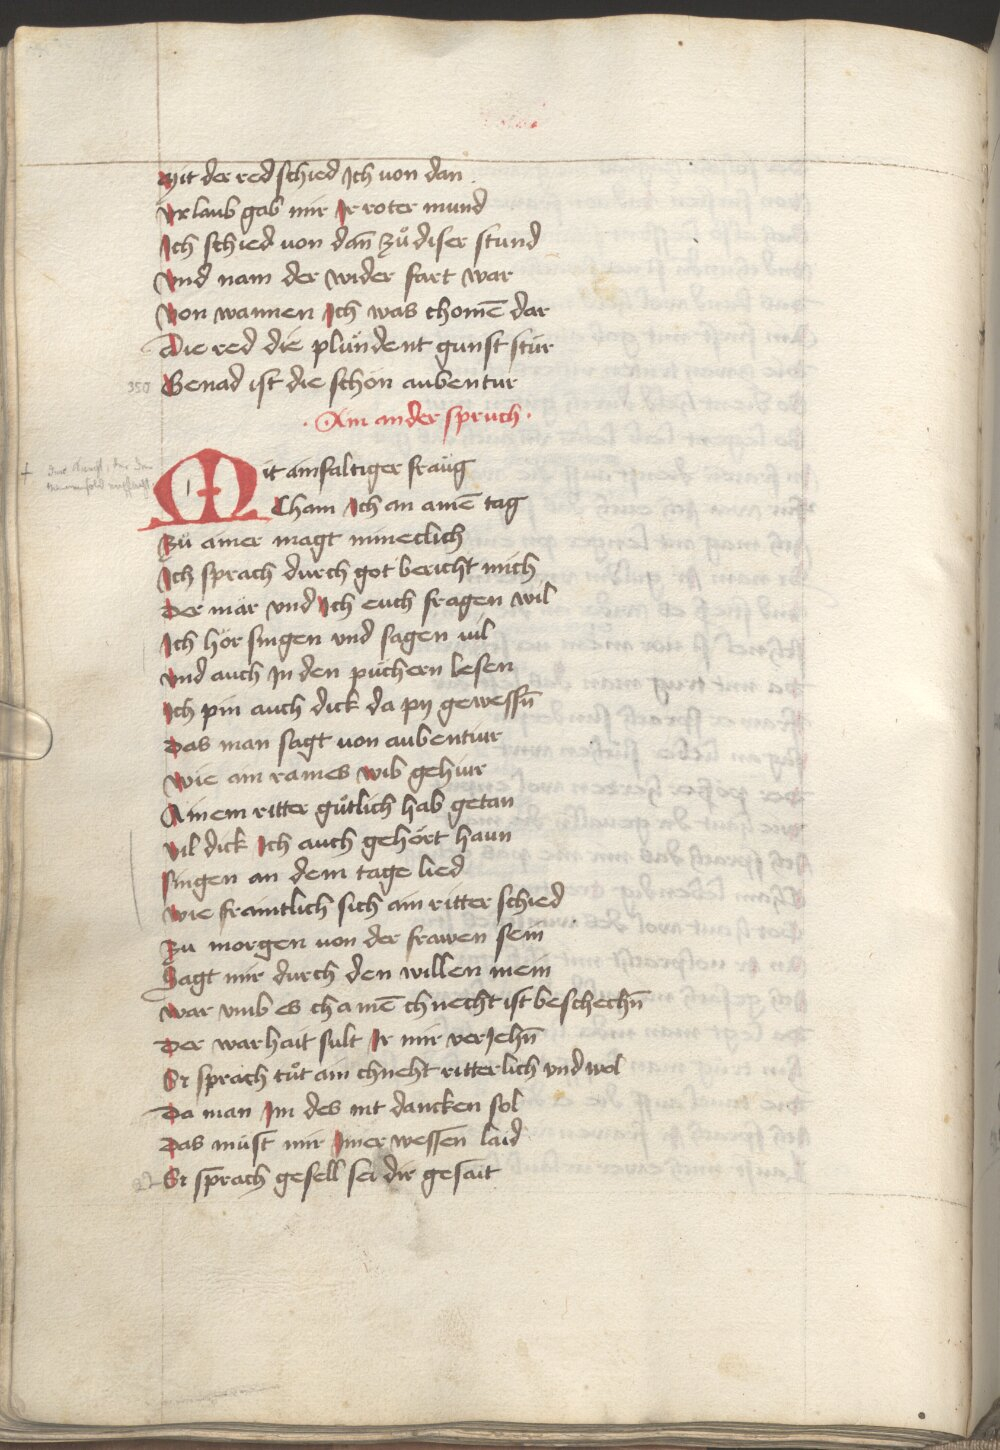 Mit der red schied Ich von dan
Vrlaub gab mir Ir roter mund
Ich schied von dañ zů diser stund
Vnd nam der wider fart war
Von wannen Ich was chomē dar
Die red die plündent gunst stür
350 Genad ist die schön aubentur
· Ain ander spruch ·
Mit ainfaltiger fraüg
Cham Ich an ainē tag
Zü ainer magt mineclich
Ich sprach durch got bericht mich
Der mär vnd Ich euch fragen wil
Ich hör singen vnd sagen vil
Vnd auch In den püchern lesen
Ich pin auch dick da pij gewessñ
Das man sagt von aubentur
Wie ain raines wib gehiur
Ainem ritter gůtlich hab getan
Vil dick Ich auch gehört haun
Singen an dem tage lied
Wie fraintlich sich ain ritter schied
Zu morgen von der frawen sein
Sagt mir durch den willen mein
War vmb es chainē chnecht ist beschechñ
Der warhait sült Ir mir verjehñ
Si sprach tůt ain chneht ritterlich vnd wol
Da man Im des nit dancken sol
Das müst mir Imer wessen laid
Si sprach gesell sei dir gesait